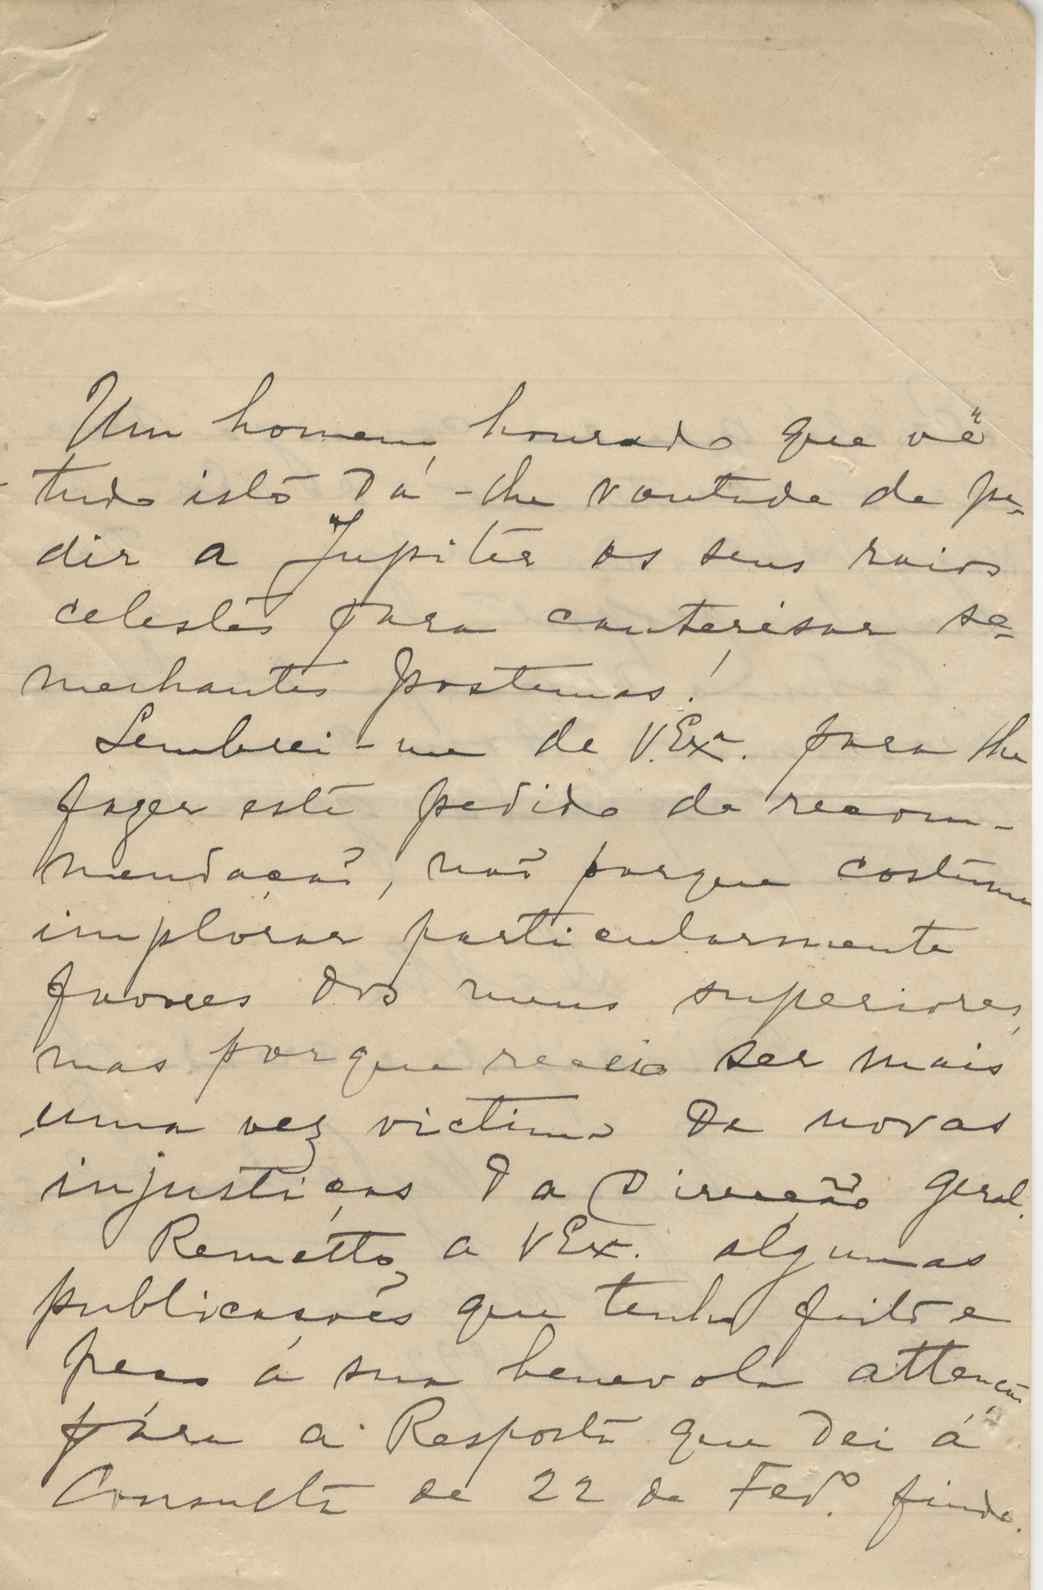 Um homem honrado que vê
tudo isto dá-lhe vontade de pe-
dir a Jupiter os seus raios
celestes para cauterisar se-
melhantes postemas!
Lembrei-me de V.Exª. para lhe
fazer este pedido de recom-
mendação, não porque costume
implorar particularmente
favores dos meus superiores,
mas porque receio ser mais
uma vez victima de novas
injustiças da Direcção geral.
Remetto a VEx. algumas
publicações que tenho feito e
peço á sua benevola attenção
para a Resposta que dei á
Consulta de 22 de Fevº. findo.